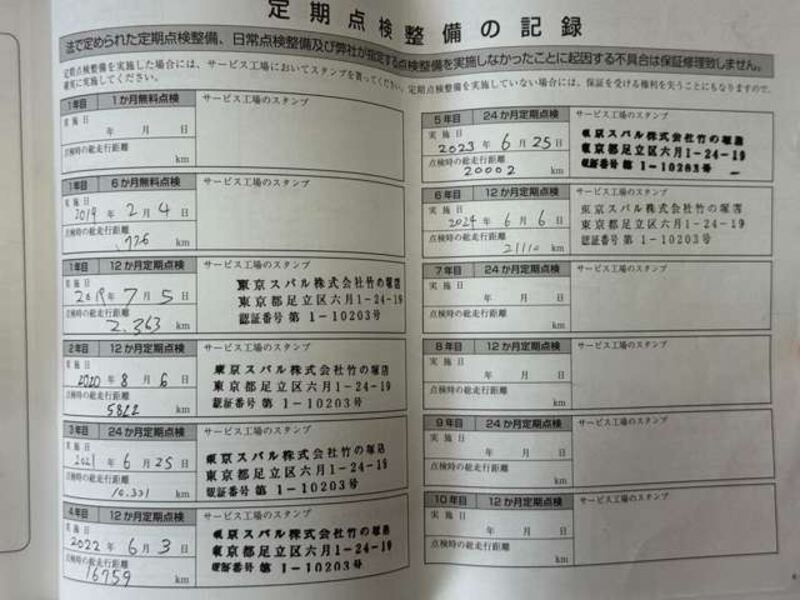 定期点検整備の記録
法で定められた定期点検整備、日常点検整備及び弊社が指定する点検整備を実施しなかったことに起因する不具合は保証修理致しません。
定期点検整備を実施した場合には、サービス工場においてスタンプを貰ってください。定期点検整備を実施していない場合には、保証を受ける権利を失うことにもなりますので、
確実に実施してください。
1年目 1か月無料点検 サービス工場のスタンプ
実施日
年 月 日
点検時の総走行距離
km
1年目 6か月無料点検 サービス工場のスタンプ
実施日
2019年 2月 4日
点検時の総走行距離
726 km
1年目 12か月定期点検 サービス工場のスタンプ
実施日
2019年 7月 5日
点検時の総走行距離
2.363 km
東京スバル株式会社竹の塚店
東京都足立区六月1-24-19
認証番号 第 1-10203号
2年目 12か月定期点検 サービス工場のスタンプ
実施日
2020年 8月 6日
点検時の総走行距離
5822 km
東京スバル株式会社竹の塚店
東京都足立区六月1-24-19
認証番号 第 1-10203号
3年目 24か月定期点検 サービス工場のスタンプ
実施日
2021年 6月 25日
点検時の総走行距離
10.331 km
東京スバル株式会社竹の塚店
東京都足立区六月1-24-19
認証番号 第 1-10203号
4年目 12か月定期点検 サービス工場のスタンプ
実施日
2022年 6月 3日
点検時の総走行距離
16759 km
東京スバル株式会社竹の塚店
東京都足立区六月1-24-19
認証番号 第 1-10203号
5年目 24か月定期点検 サービス工場のスタンプ
実施日
2023年 6月 25日
点検時の総走行距離
20002 km
東京スバル株式会社竹の塚店
東京都足立区六月1-24-19
認証番号 第 1-10203号
6年目 12か月定期点検 サービス工場のスタンプ
実施日
2024年 6月 6日
点検時の総走行距離
21110 km
東京スバル株式会社竹の塚店
東京都足立区六月1-24-19
認証番号 第 1-10203号
7年目 24か月定期点検 サービス工場のスタンプ
実施日
年 月 日
点検時の総走行距離
km
8年目 12か月定期点検 サービス工場のスタンプ
実施日
年 月 日
点検時の総走行距離
km
9年目 24か月定期点検 サービス工場のスタンプ
実施日
年 月 日
点検時の総走行距離
km
10年目 12か月定期点検 サービス工場のスタンプ
実施日
年 月 日
点検時の総走行距離
km